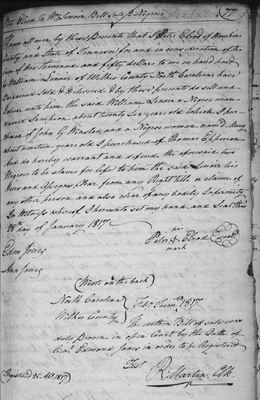 Peter Elrod to Wm Lenoir Bill Sale for Negroes
Know all men by these Presents that I Peter Elrod of
County and State of Tennessee for and in consideration of the
Sum of Nine Hundred and fifty dollars to me in hand paid
by William Lenoir of Wilkes County North Carolina have
Bargained Sold & Delivered & by these presents do sell and
deliver unto him the said William Lenoir a Negroe man
named Sampson about twenty six year old which I pur-
chased of John G Winston and a Negroe woman named Mary
about nineteen years old I purchased of Thomas
And do hereby warrant and defend the aforesaid two
Negroes to be slaves for life to him the said Lenoir his
Heirs and Assigns clear from any Right title or claim of
any other person and also clear of any bodily Infirmity
In Witness whereof I hereunto set my hand and Seal this
28 day of January 1817
Peter X Elrod Seal
his
mark
Edm Jones
Ann Jones
(Wrote on the back)
North Carolina
Wilkes County
Feby Term 1817
The within Bill of sale was
duly Proven in open Court by the Oath of
Genl Edmond Jones ordered to be Registered
Test
R. Martin Clk
(Registered 1817)